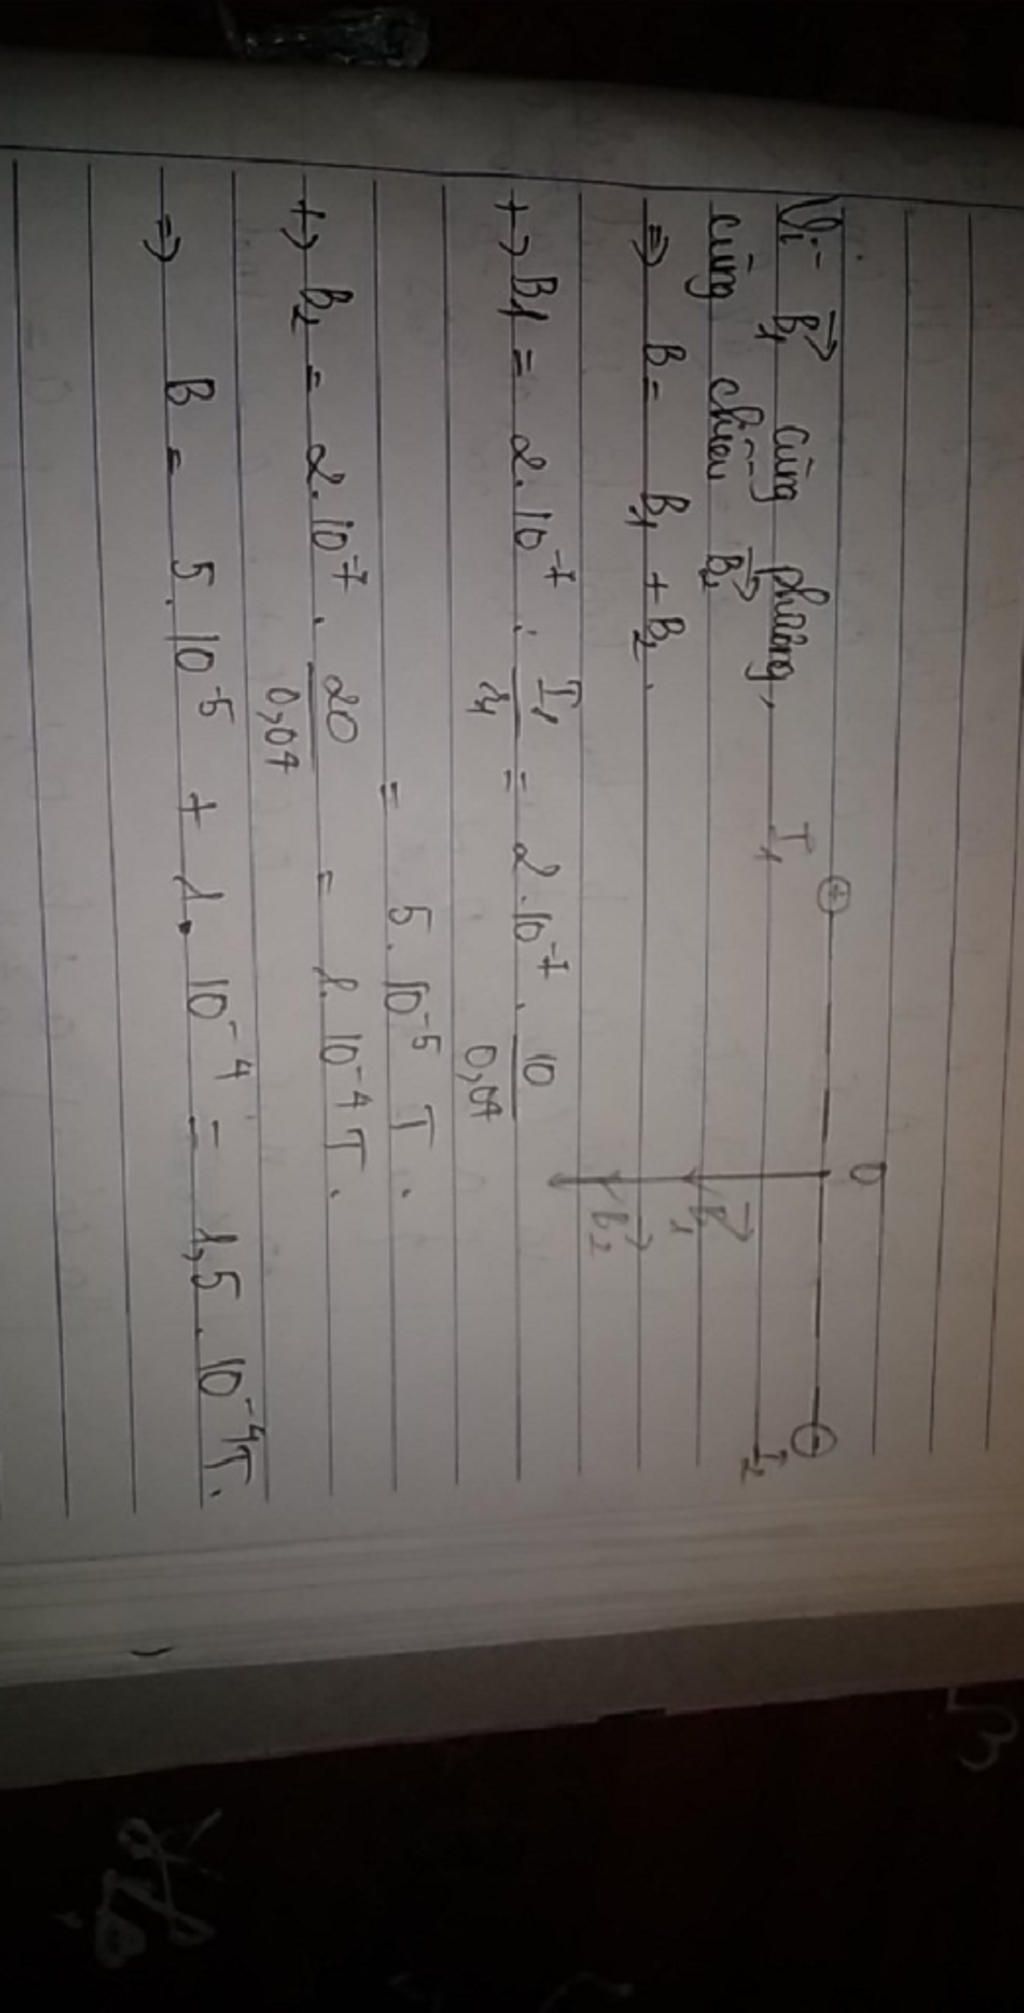 I₁ ⊕ O I₂
Vì B₁→ cùng phương,
cùng chiều B₂→
B₁→
B₂→
=> B = B₁ + B₂.
+> B1 = 2.10⁻⁷ . I₁/r₁ = 2.10⁻⁷ . 10/0,04
= 5.10⁻⁵ T.
+> B₂ = 2.10⁻⁷ . 20/0,04 = 1.10⁻⁴ T.
=> B = 5.10⁻⁵ + 1.10⁻⁴ = 1,5.10⁻⁴T.